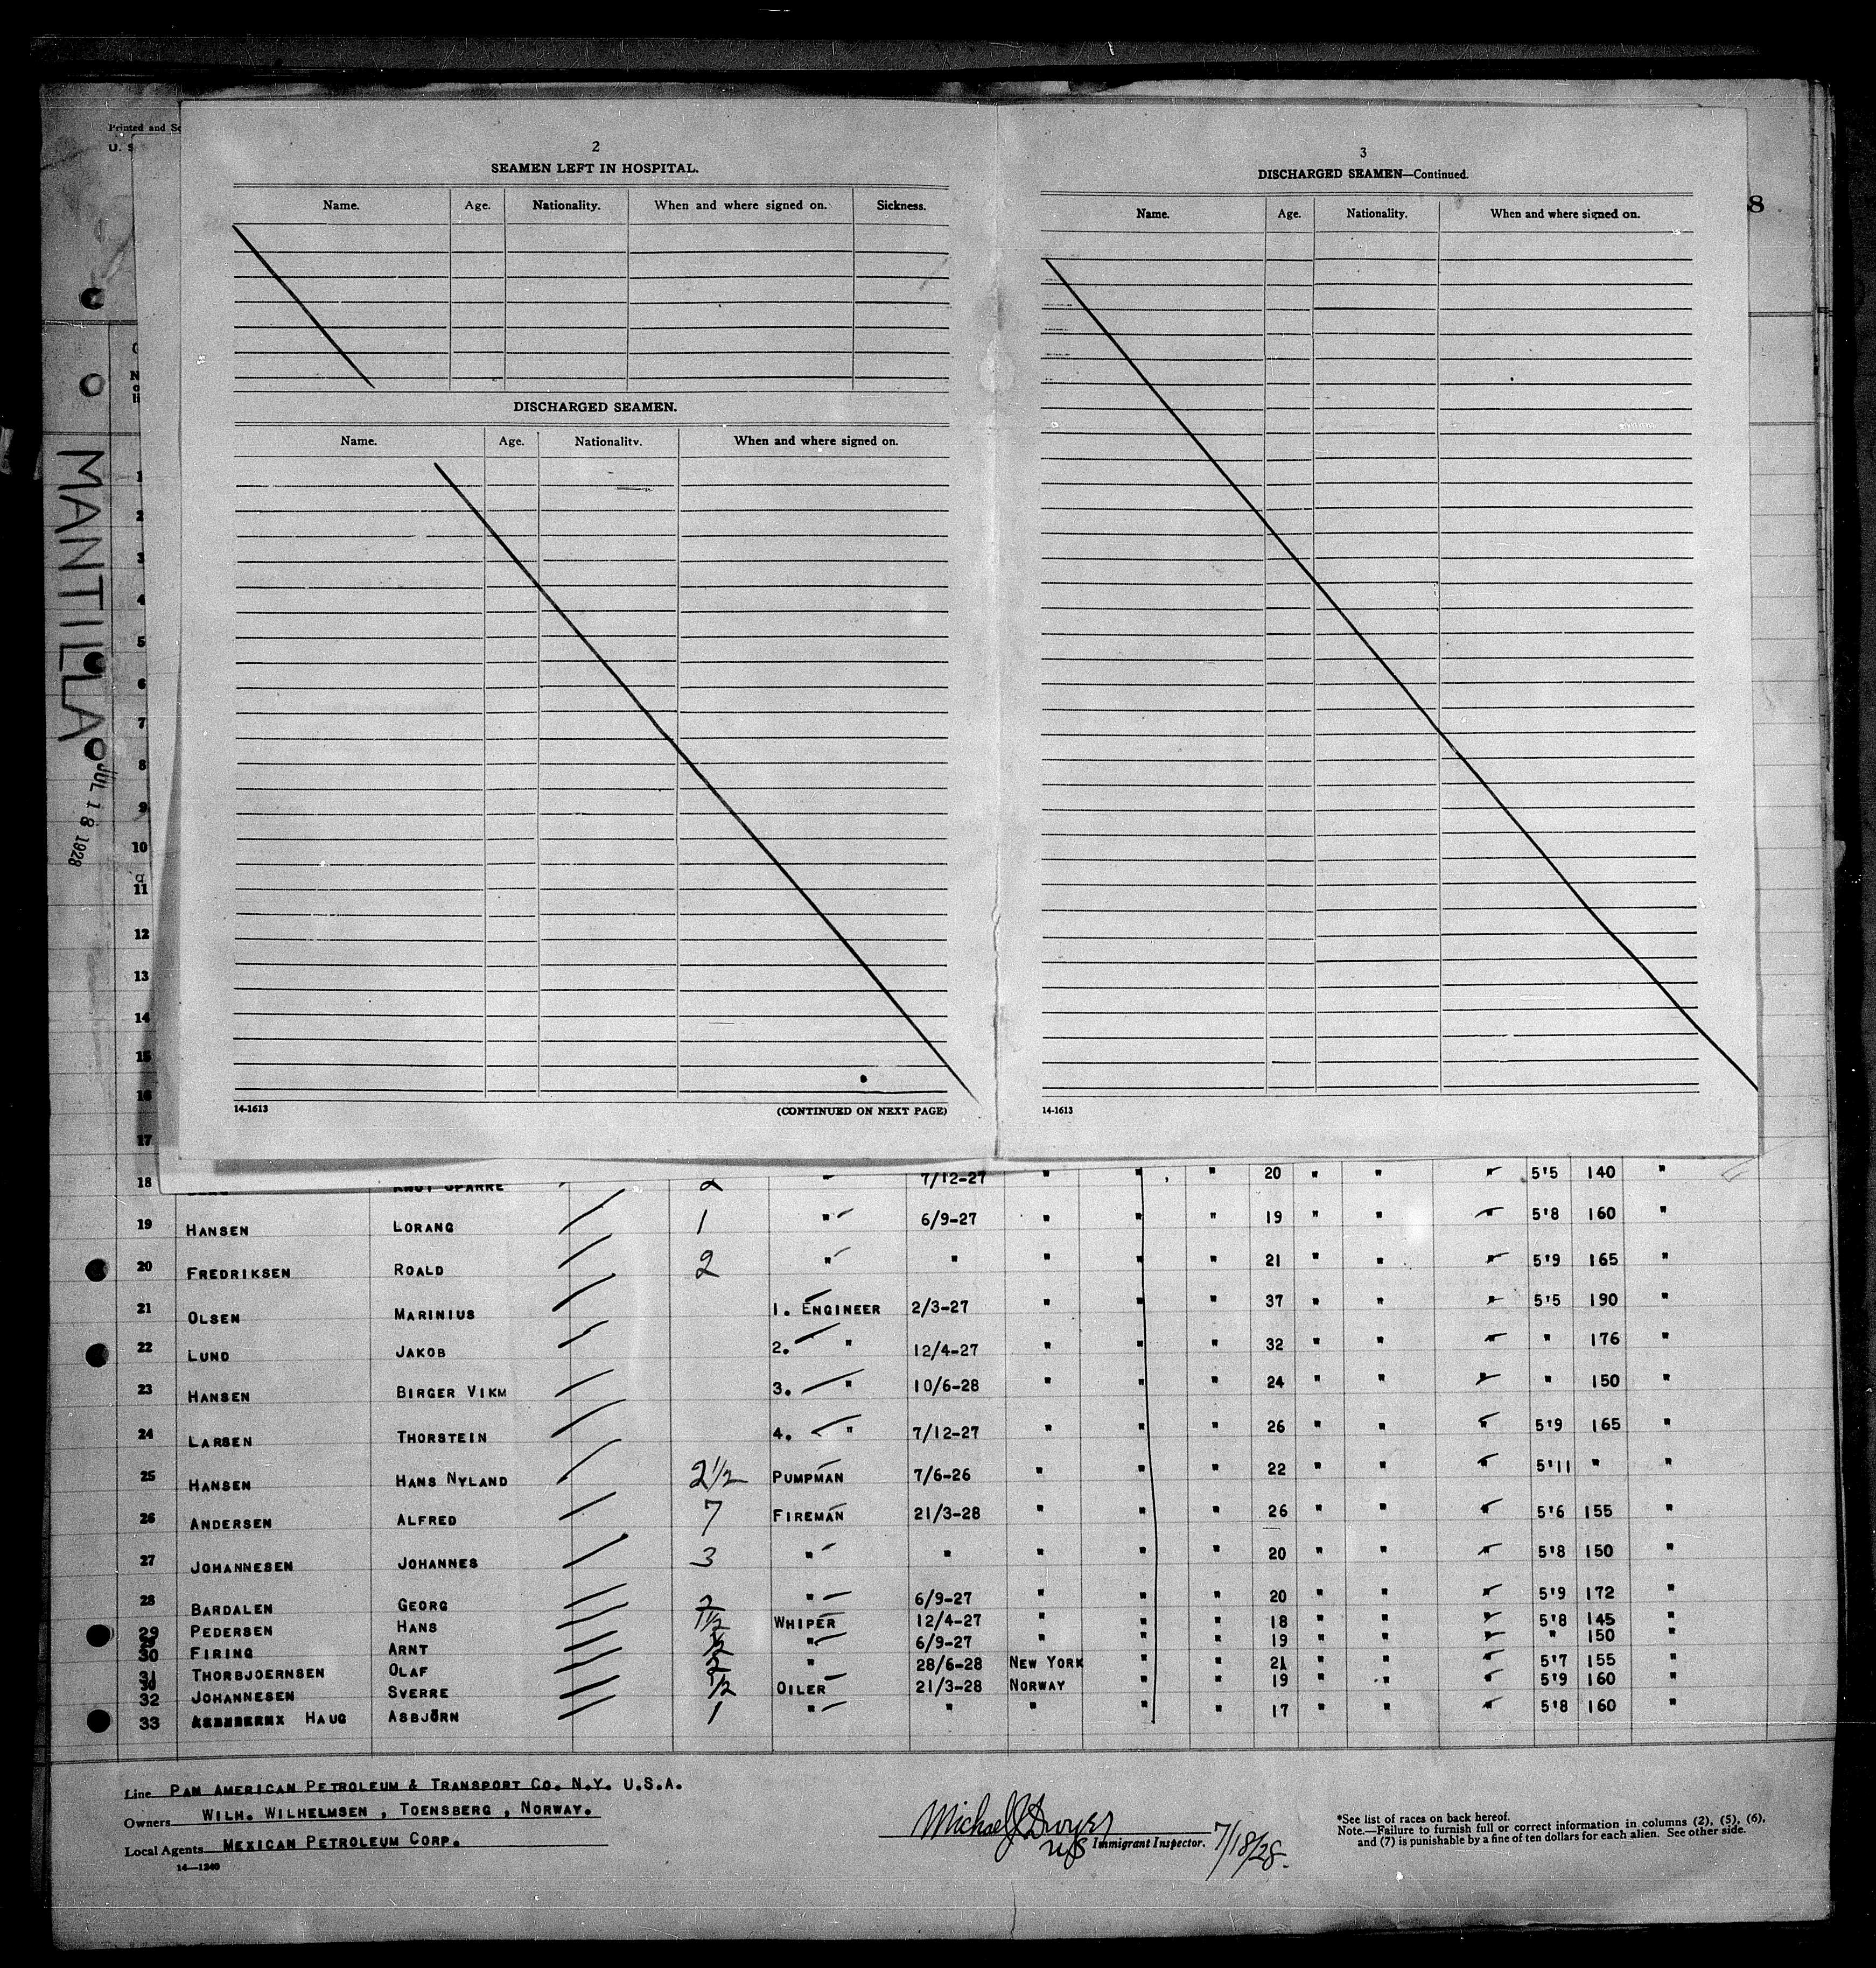 Printed and Se
U. S
8
MANTILLA
JUL 18 1928
2
SEAMEN LEFT IN HOSPITAL.
Name. Age. Nationality. When and where signed on. Sickness.
DISCHARGED SEAMEN.
Name. Age. Nationality. When and where signed on.
14-1613 (CONTINUED ON NEXT PAGE)
3
DISCHARGED SEAMEN—Continued.
Name. Age. Nationality. When and where signed on.
14-1613
1
2
3
4
5
6
7
8
9
10
11
12
13
14
15
16
17
18 KNUT SPARRE 2 " 7/12-27 " " " 20 " " " 5'5 140 "
19 HANSEN LORANG 1 " 6/9-27 " " " 19 " " " 5'8 160 "
20 FREDRIKSEN ROALD 2 " " " " " 21 " " " 5'9 165 "
21 OLSEN MARINIUS 1. ENGINEER 2/3-27 " " " 37 " " " 5'5 190 "
22 LUND JAKOB 2. " 12/4-27 " " " 32 " " " " 176 "
23 HANSEN BIRGER VIKM 3. " 10/6-28 " " " 24 " " " " 150 "
24 LARSEN THORSTEIN 4. " 7/12-27 " " " 26 " " " 5'9 165 "
25 HANSEN HANS NYLAND 2½ PUMPMAN 7/6-26 " " " 22 " " " 5'11 " "
26 ANDERSEN ALFRED 7 FIREMAN 21/3-28 " " " 26 " " " 5'6 155 "
27 JOHANNESEN JOHANNES 3 " " " " " 20 " " " 5'8 150 "
28 BARDALEN GEORG 2 " 6/9-27 " " " 20 " " " 5'9 172 "
29 PEDERSEN HANS 1½ WHIPER 12/4-27 " " " 18 " " " 5'8 145 "
30 FIRING ARNT ½ " 6/9-27 " " " 19 " " " " 150 "
31 THORBJOERNSEN OLAF 2 " 28/6-28 NEW YORK " " 21 " " " 5'7 155 "
32 JOHANNESEN SVERRE ½ OILER 21/3-28 NORWAY " " 19 " " " 5'9 160 "
33 HAUG ASBJÖRN 1 " " " " " 17 " " " 5'8 160 "
Line PAN AMERICAN PETROLEUM & TRANSPORT CO. N.Y. U.S.A.
Owners WILH. WILHELMSEN , TOENSBERG , NORWAY.
Local Agents MEXICAN PETROLEUM CORP.
14—1240
Michael J Dwyer
Immigrant Inspector. 7/18/28.
*See list of races on back hereof.
Note.—Failure to furnish full or correct information in columns (2), (5), (6),
and (7) is punishable by a fine of ten dollars for each alien. See other side.